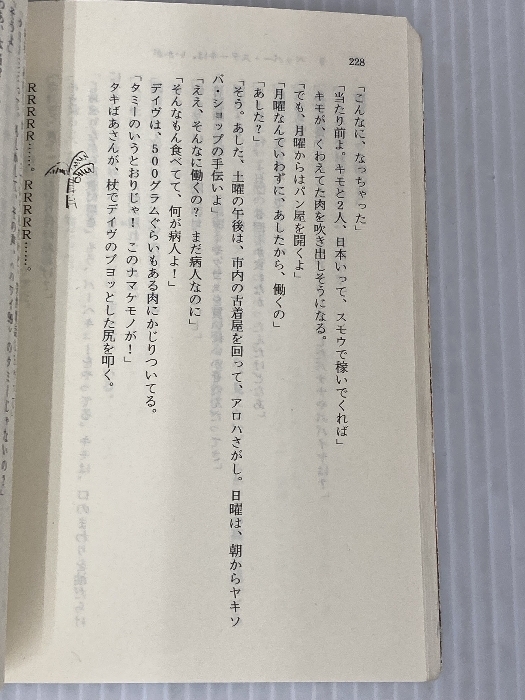 228
「こんなに、なっちゃった」
「当たり前よ。キモと2人、日本いって、スモウで稼いでくれば」
キモが、くわえてた肉を吹き出しそうになる。
「でも、月曜からはパン屋を開くよ」
「月曜なんていわずに、あしたから、働くの」
「あした？」
「そう。あした、土曜の午後は、市内の古着屋を回って、アロハさがし。日曜は、朝からヤキソ
バ・ショップの手伝いよ」
「ええ、そんなに働くの？ まだ病人なのに」
「そんなもん食べてて、何が病人よ！」
デイヴは、500グラムぐらいもある肉にかじりついてる。
「タミーのいうとおりじゃ！ このナマケモノが！」
タキばあさんが、杖でデイヴのプヨッとした尻を叩く。
RRRRR……。RRRRR……。